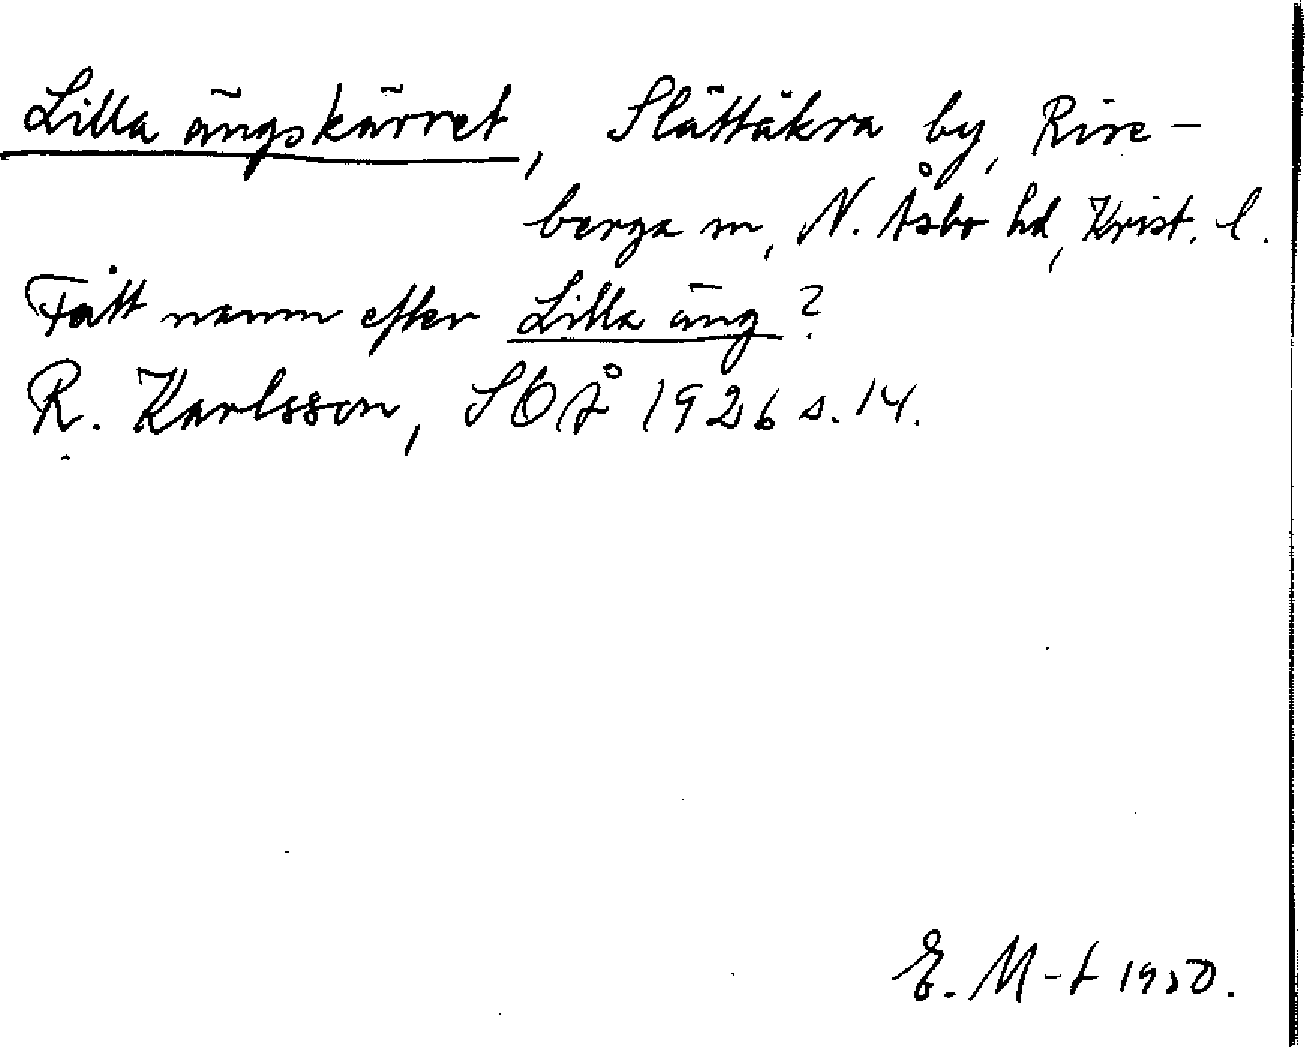 Lilla ängskärret, Slättåkra by, Rise-
berga sn, N. Åsbo hd, Krist. l.
Fått namn efter Lilla äng?
R. Karlsson, SOÅ 1926 s. 14.
E. M-t 1950.